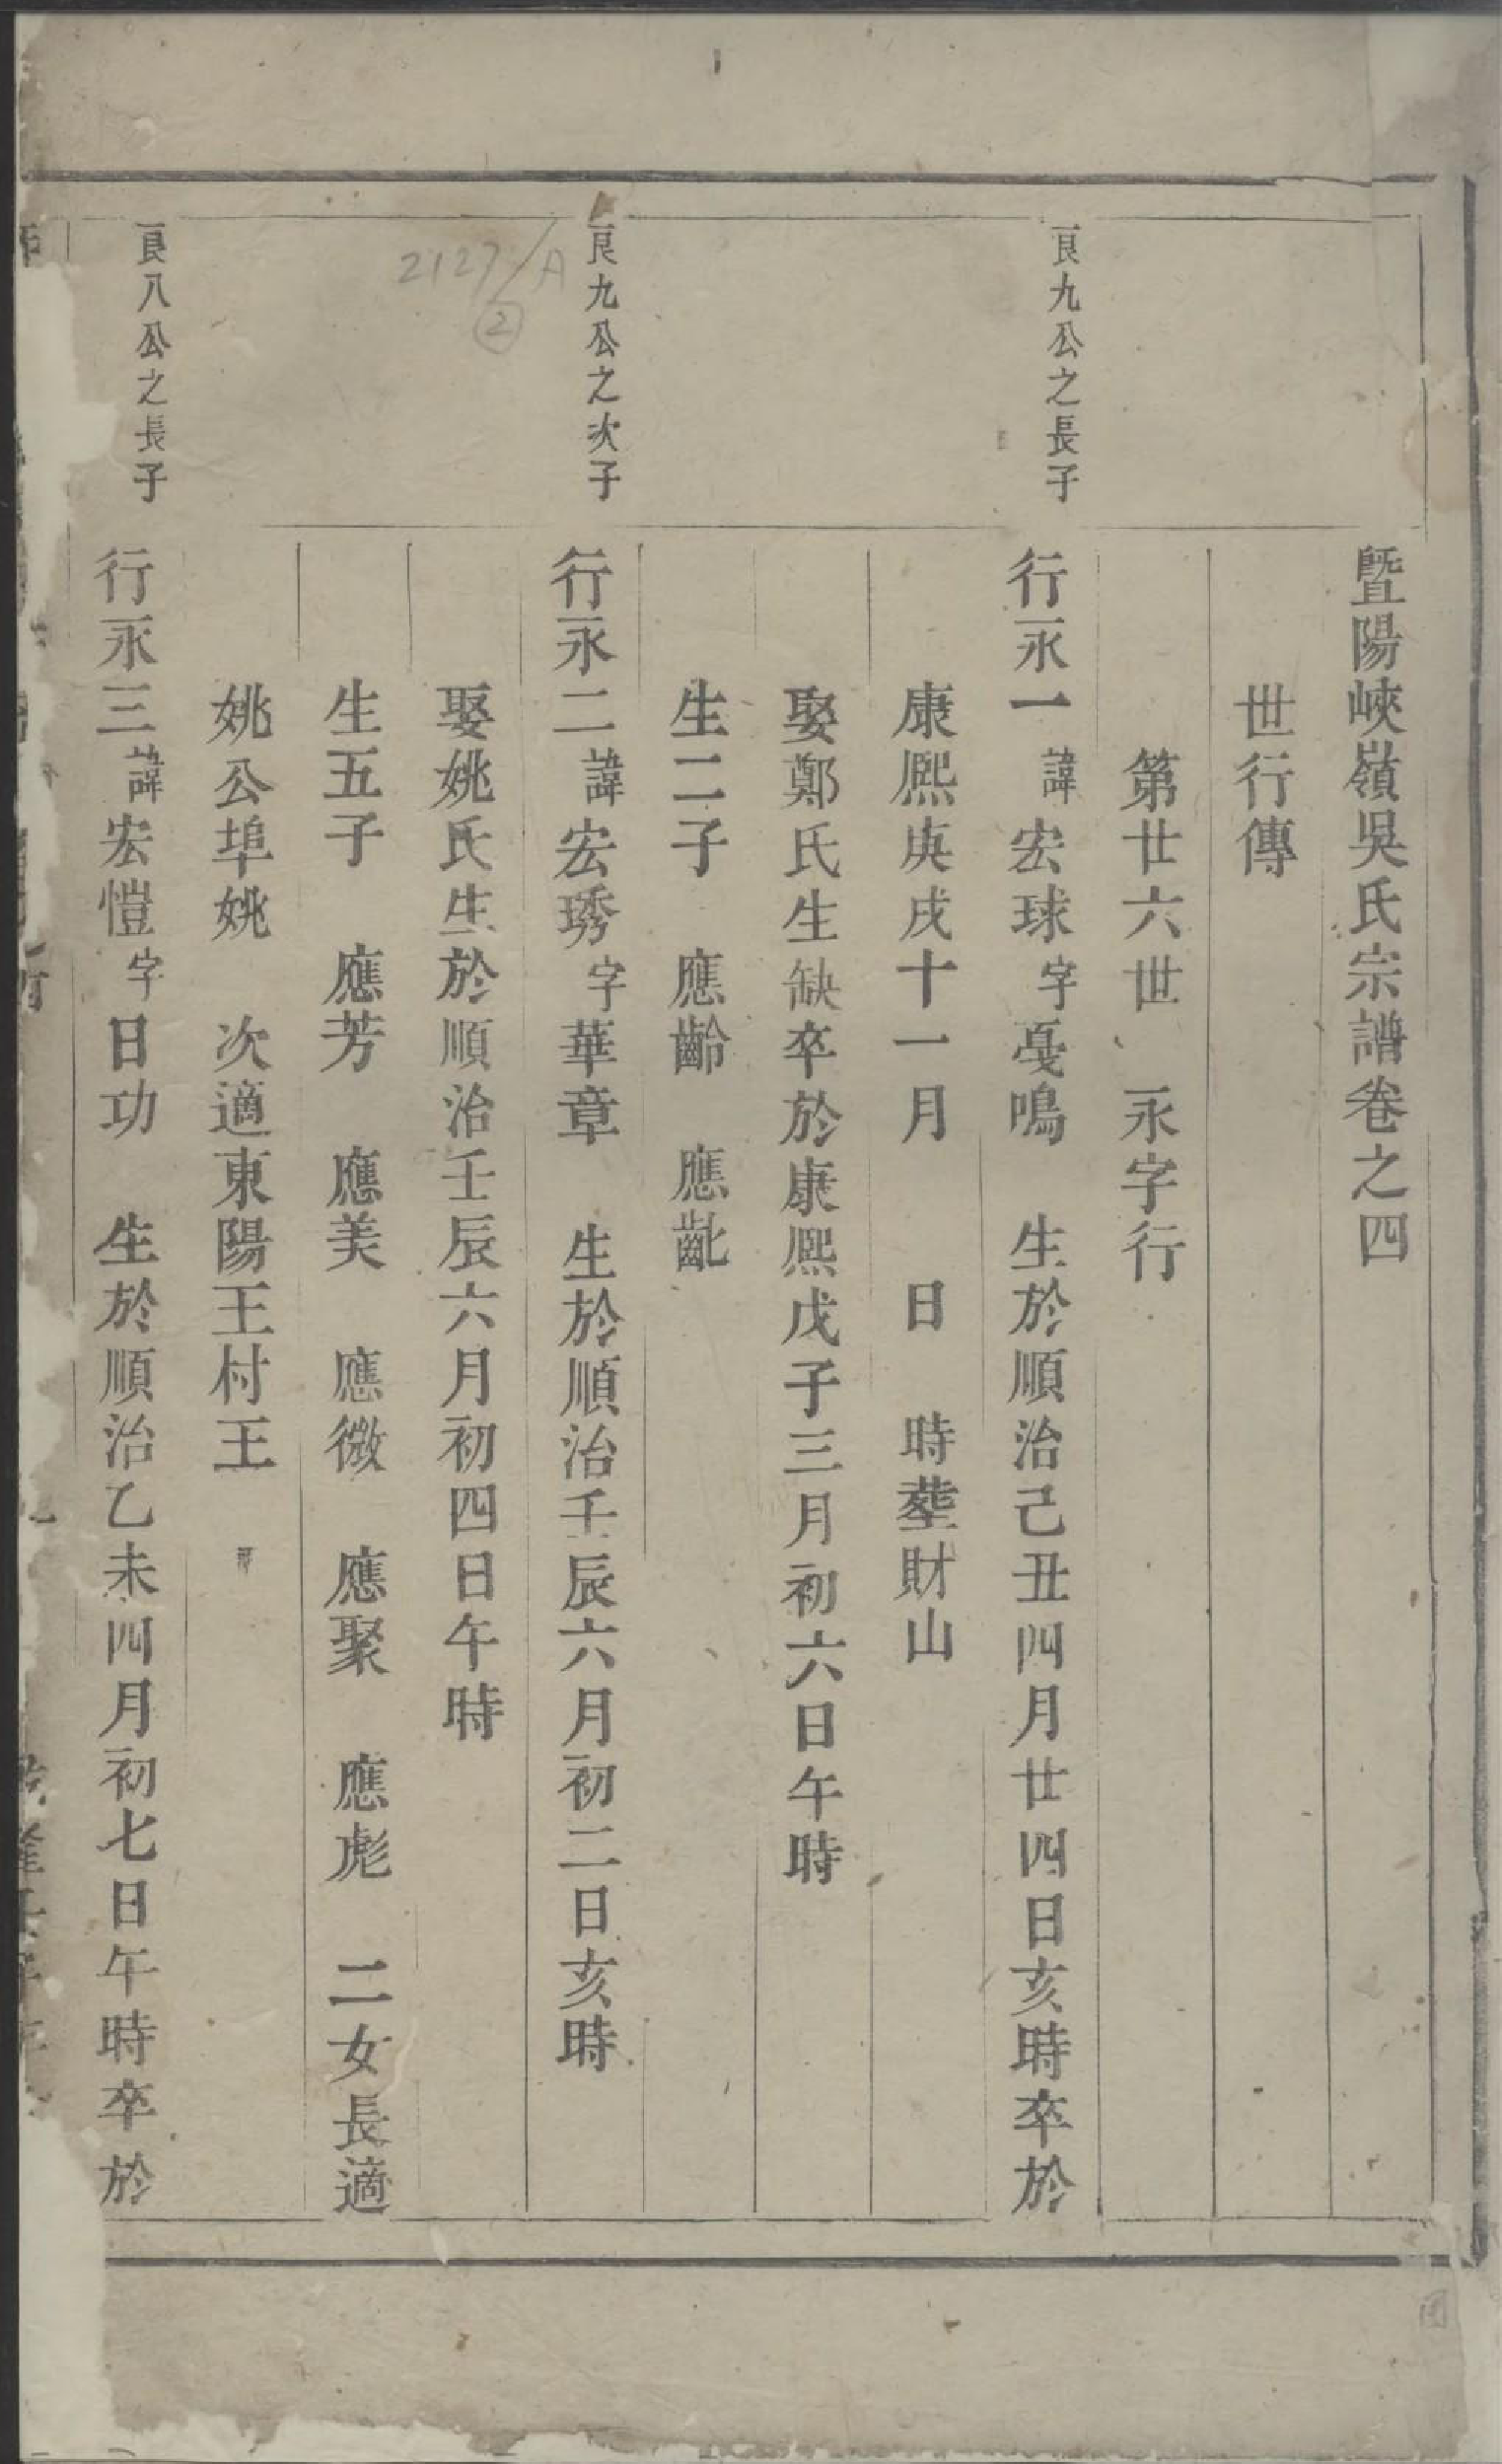 暨陽峽嶺吳氏宗譜卷之四
世行傳
第廿六世 永字行
良九公之長子
行永一諱宏球字戞鳴 生於順治己丑四月廿四日亥時卒於
康熙庚戌十一月 日 時塟財山
娶鄭氏生缺卒於康熙戊子三月初六日午時
生二子 應齡 應齔
良九公之次子
行永二諱宏琇字華章 生於順治壬辰六月初二日亥時
娶姚氏生於順治壬辰六月初四日午時
生五子 應芳 應美 應微 應聚 應彪 二女長適
姚公埠姚 次適東陽王村王
良八公之長子
行永三諱宏愷字日功 生於順治乙未四月初七日午時卒於
2127/A
②